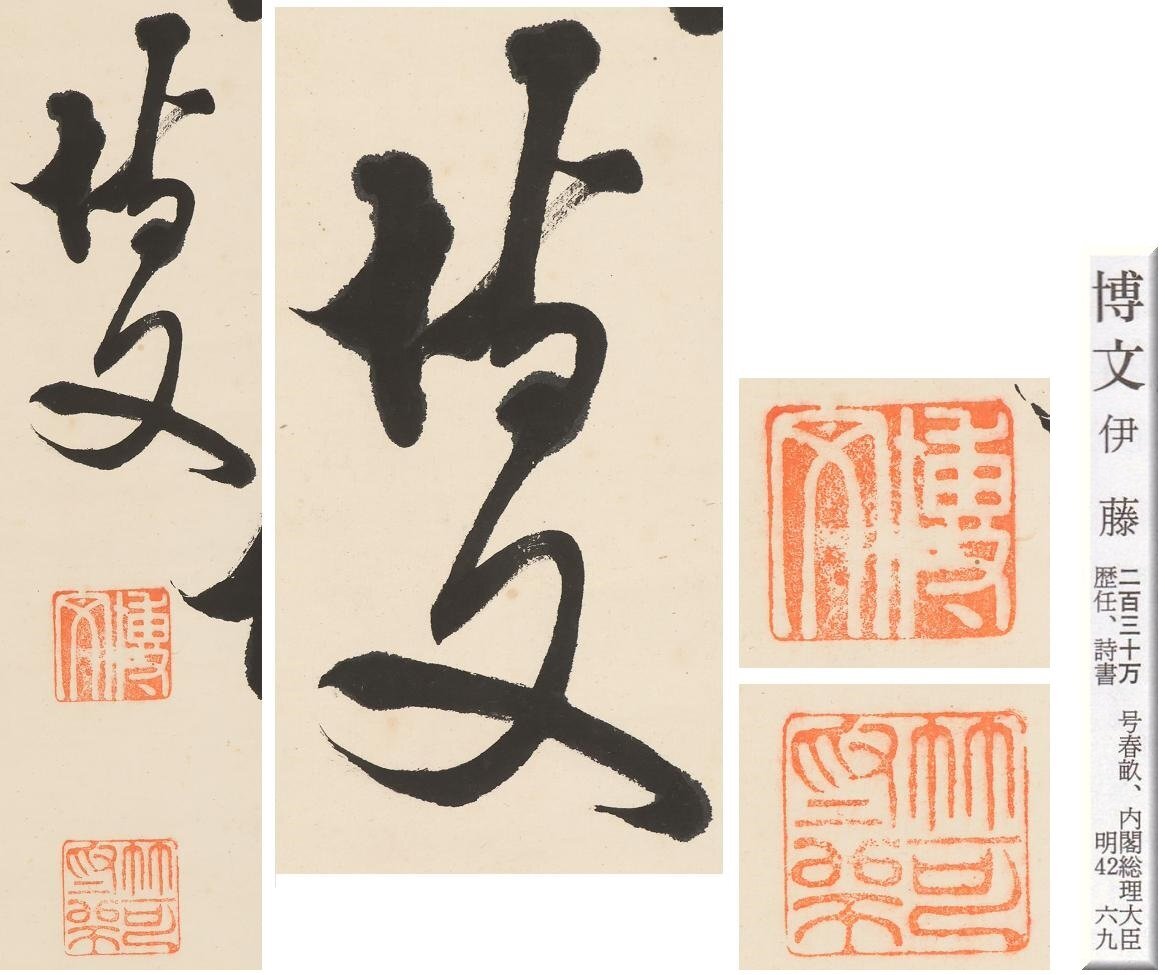 博文
博文
博文
博文
博文 伊藤
二百三十万 号春畝、内閣総理大臣
歴任、詩書 明42 六九